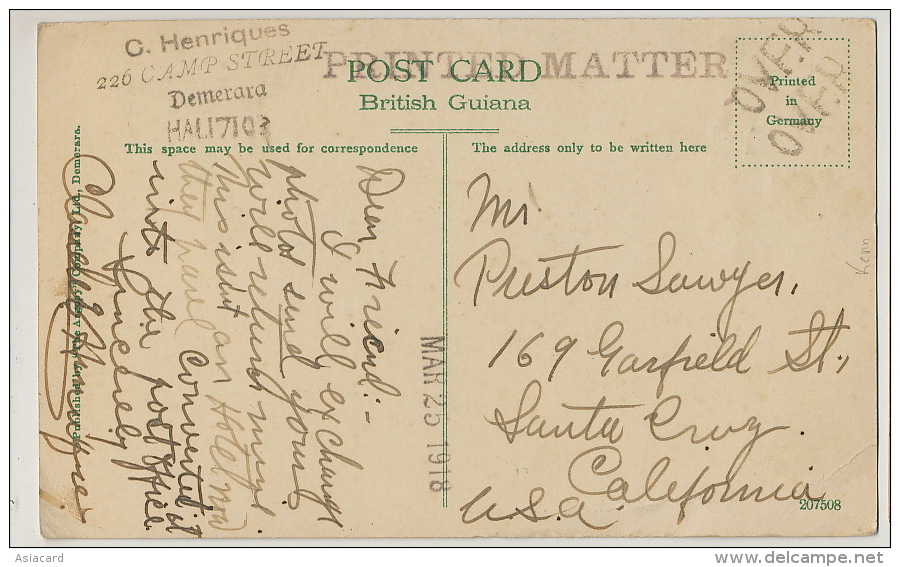 C. Henriques
226 CAMP STREET
Demerara
HALI7103
PRINTED MATTER
OVER
OVER
POST CARD
British Guiana
Printed
in
Germany
This space may be used for correspondence
The address only to be written here
Dear Friend:-
I will exchange
photos send yours I
will return mine
This isint an Hotel now
they have converted it
into the post office.
Sincerely
Claude Henriques
MAR 25 1918
Mr.
Preston Sawyer,
169 Garfield St.,
Santa Cruz.
California
U.S.A.
Kern
207508
Published by The Argosy Company, Ltd., Demerara.
Asiacard
www.delcampe.net